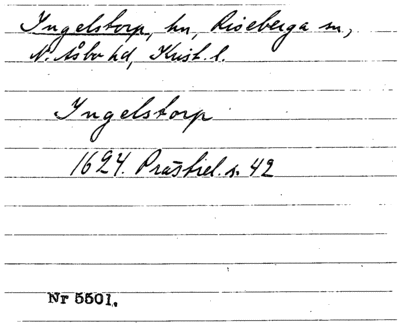 Ingelstorp, hn, Riseberga sn,
N. Åsbo hd, Krist. l.
Ingelstorp
1624. Prästrel. s. 42
Nr 5501.